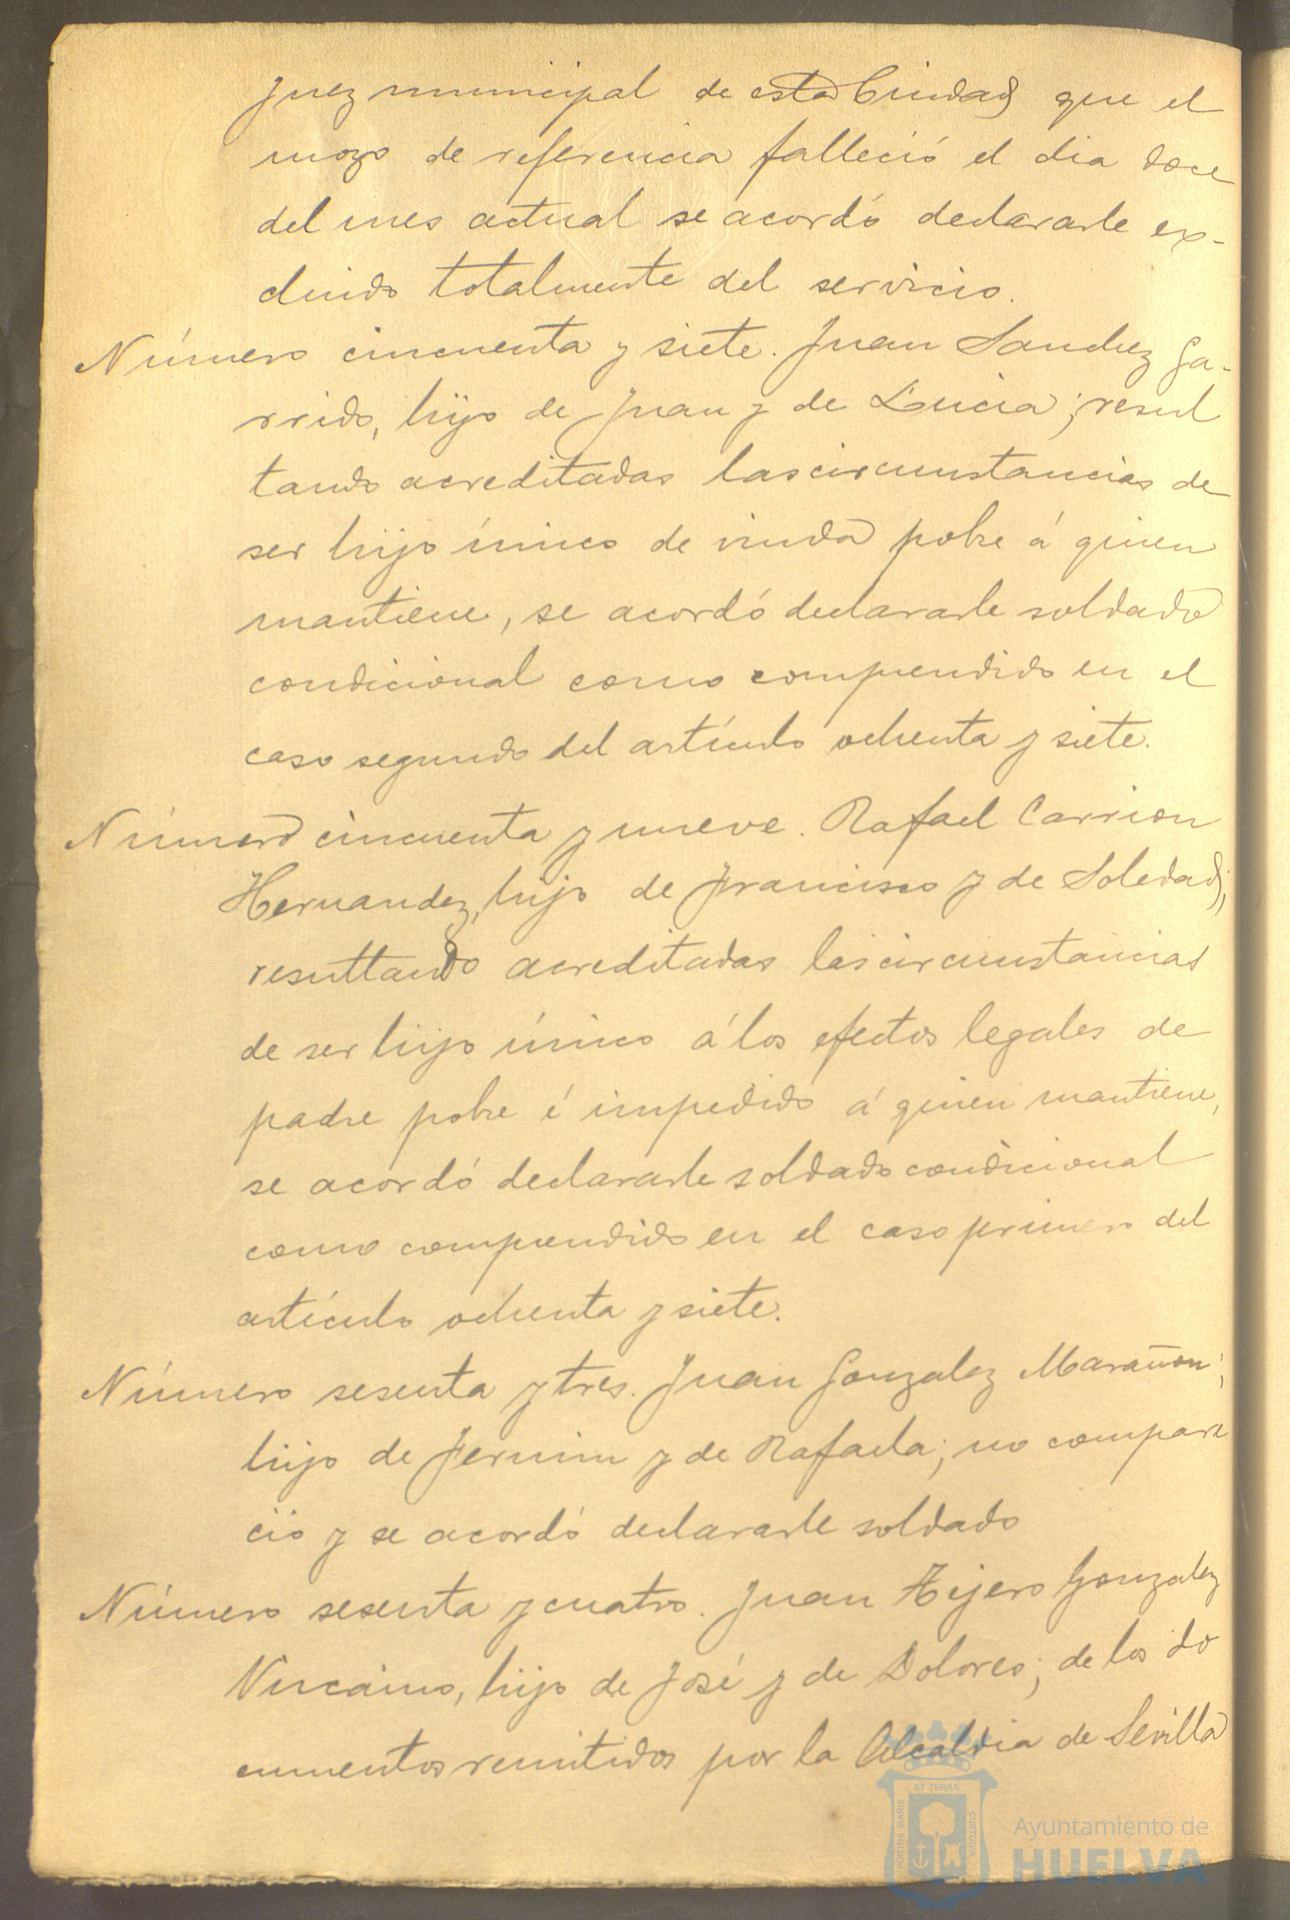 juez municipal de esta Ciudad que el
mozo de referencia falleció el dia doce
del mes actual se acordó declararle ex-
cluido totalmente del servicio.
Número cincuenta y siete. Juan Sanchez Ga-
rrido, hijo de Juan y de Lucia; resul
tando acreditadas las circunstancias de
ser hijo único de viuda pobre á quien
mantiene, se acordó declararle soldado
condicional como comprendido en el
caso segundo del artículo ochenta y siete.
Número cincuenta y nueve. Rafael Carrion
Hernandez, hijo de Francisco y de Soledad;
resultando acreditadas las circunstancias
de ser hijo único á los efectos legales de
padre pobre é impedido á quien mantiene,
se acordó declararle soldado condicional
como comprendido en el caso primero del
artículo ochenta y siete.
Número sesenta y tres. Juan Gonzalez Marañon;
hijo de Fermin y de Rafaela; no compare
ció y se acordó declararle soldado
Número sesenta y cuatro. Juan Tejero Gonzalez
hijo de José y de Dolores; de los do
cumentos remitidos por la Alcaldia de Sevilla
PORTUS MARIS
ET TERRAE
CUSTODIA
Ayuntamiento de
HUELVA